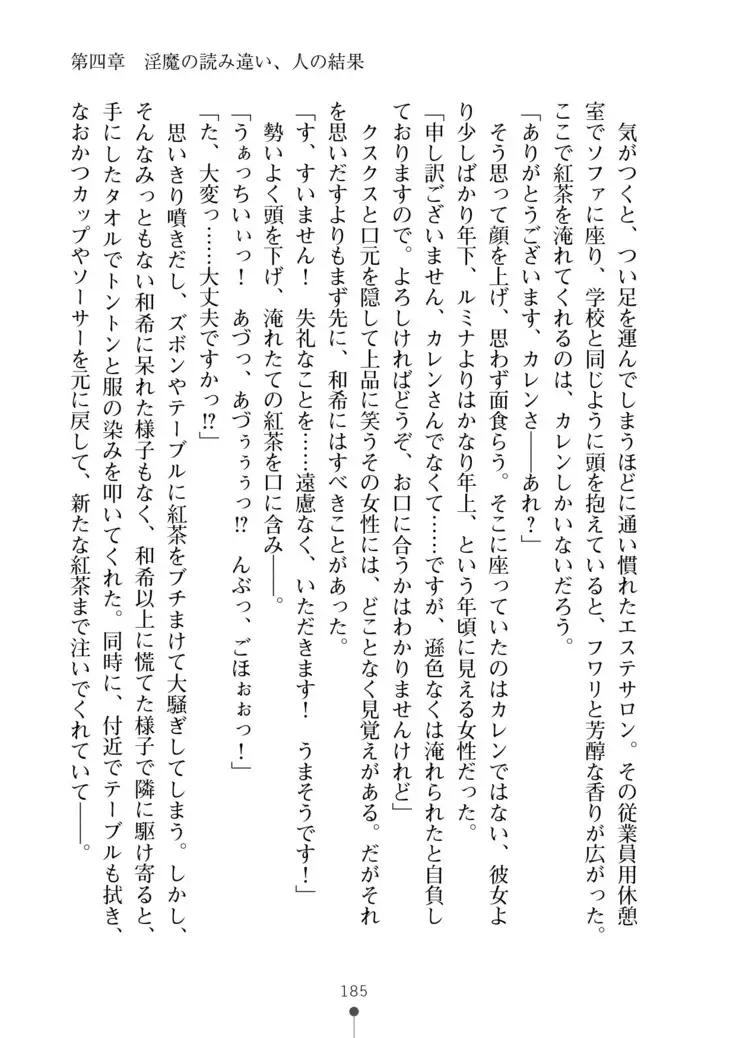 第四章　淫魔の読み違い、人の結果
　気がつくと、つい足を運んでしまうほどに通い慣れたエステサロン。その従業員用休憩
室でソファに座り、学校と同じように頭を抱えていると、フワリと芳醇な香りが広がった。
ここで紅茶を淹れてくれるのは、カレンしかいないだろう。
「ありがとうございます、カレンさ――あれ？」
　そう思って顔を上げ、思わず面食らう。そこに座っていたのはカレンではない、彼女よ
り少しばかり年下、ルミナよりはかなり年上、という年頃に見える女性だった。
「申し訳ございません、カレンさんでなくて……ですが、遜色なくは淹れられたと自負し
ておりますので。よろしければどうぞ、お口に合うかはわかりませんけれど」
　クスクスと口元を隠して上品に笑うその女性には、どことなく見覚えがある。だがそれ
を思いだすよりもまず先に、和希にはすべきことがあった。
「す、すいません！　失礼なことを……遠慮なく、いただきます！　うまそうです！」
　勢いよく頭を下げ、淹れたての紅茶を口に含み――。
「うぁっちいぃっ！　あづっ、あづぅぅぅっ!?　んぶっ、ごほぉぉっ！」
「た、大変っ……大丈夫ですかっ!?」
　思いきり噴きだし、ズボンやテーブルに紅茶をブチまけて大騒ぎしてしまう。しかし、
そんなみっともない和希に呆れた様子もなく、和希以上に慌てた様子で隣に駆け寄ると、
手にしたタオルでトントンと服の染みを叩いてくれた。同時に、付近でテーブルも拭き、
なおかつカップやソーサーを元に戻して、新たな紅茶まで注いでくれていて――。
185